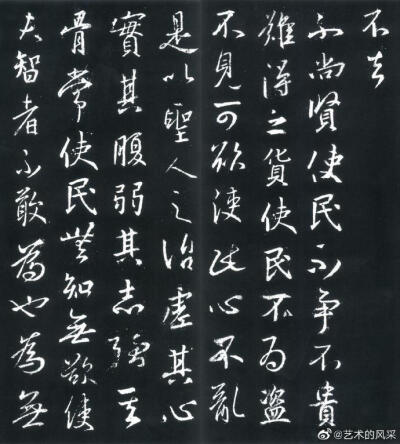 不去
不尚賢使民不争不貴
難得之貨使民不為盗
不見可欲使民心不亂
是以聖人之治虚其心
實其腹弱其志強其
骨常使民無知無欲使
夫智者不敢為也為無
@艺术的风采